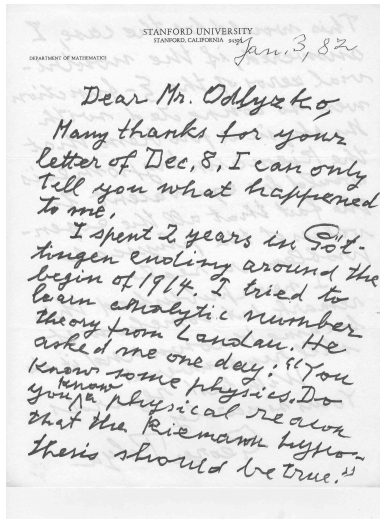 STANFORD UNIVERSITY
STANFORD, CALIFORNIA 94305
DEPARTMENT OF MATHEMATICS
Jan. 3, 82
Dear Mr. Odlyzko,
Many thanks for your
letter of Dec. 8. I can only
tell you what happened
to me.
I spent 2 years in Göt-
tingen ending around the
begin of 1914. I tried to
learn analytic number
theory from Landau. He
asked me one day: "You
know some physics. Do
you know a physical reason
that the Riemann hypo-
thesis should be true."